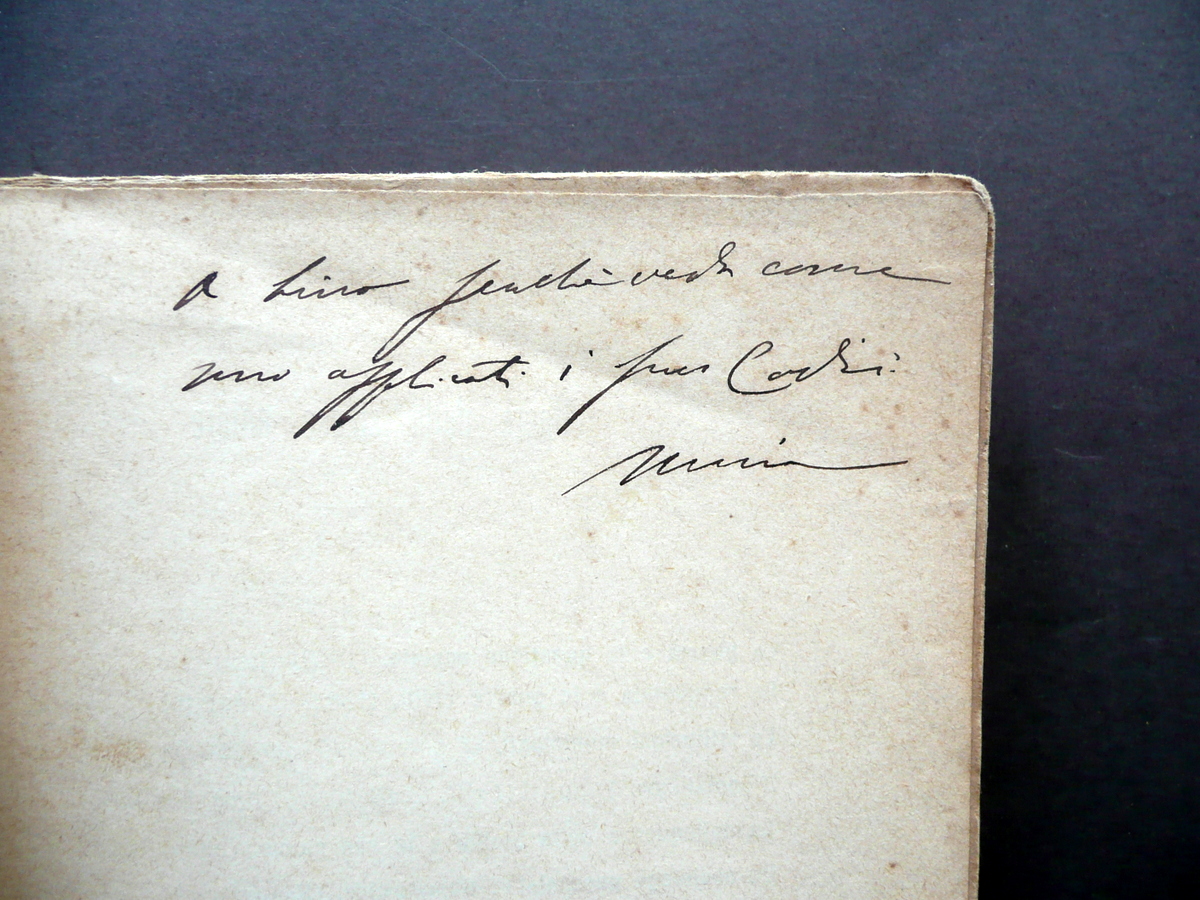 A Lino perchè veda come
sono applicati i suoi Codici.